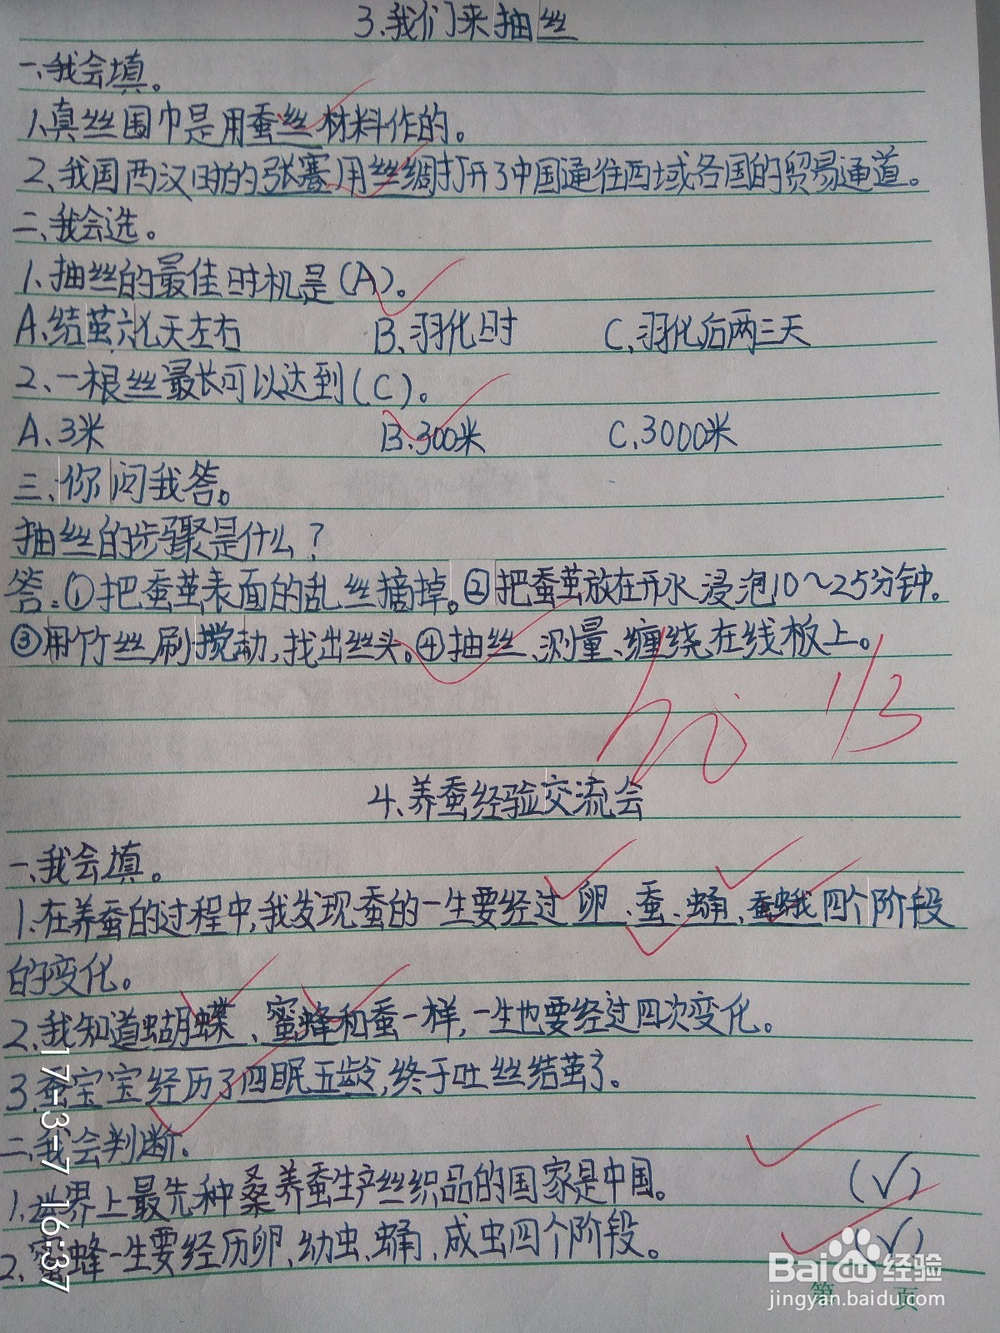 3.我们来抽丝
一、我会填。
1.真丝围巾是用蚕丝材料作的。
2.我国两汉时的张骞用丝绸打开了中国通往西域各国的贸易通道。
二、我会选。
1.抽丝的最佳时机是(A)。
A.结茧六七天左右 B.羽化时 C.羽化后两三天
2.一根丝最长可以达到(C)。
A.3米 B.300米 C.3000米
三、你问我答。
抽丝的步骤是什么?
答:①把蚕茧表面的乱丝摘掉。②把蚕茧放在开水浸泡10~25分钟。
③用竹丝刷搅动,找出丝头。④抽丝、测量、缠绕在线板上。
1/3
4.养蚕经验交流会
一、我会填。
1.在养蚕的过程中,我发现蚕的一生要经过卵、蚕、蛹、蚕蛾四个阶段
的变化。
2.我知道蝴蝶、蜜蜂和蚕一样,一生也要经过四次变化。
3.蚕宝宝经历了四眠五龄,终于吐丝结茧了。
二、我会判断。
1.世界上最先种桑养蚕生产丝织品的国家是中国。 (√)
2.蜜蜂一生要经历卵、幼虫、蛹、成虫四个阶段。 (√)
17-3-7 16:37
Baidu经验
jingyan.baidu.com
第 页